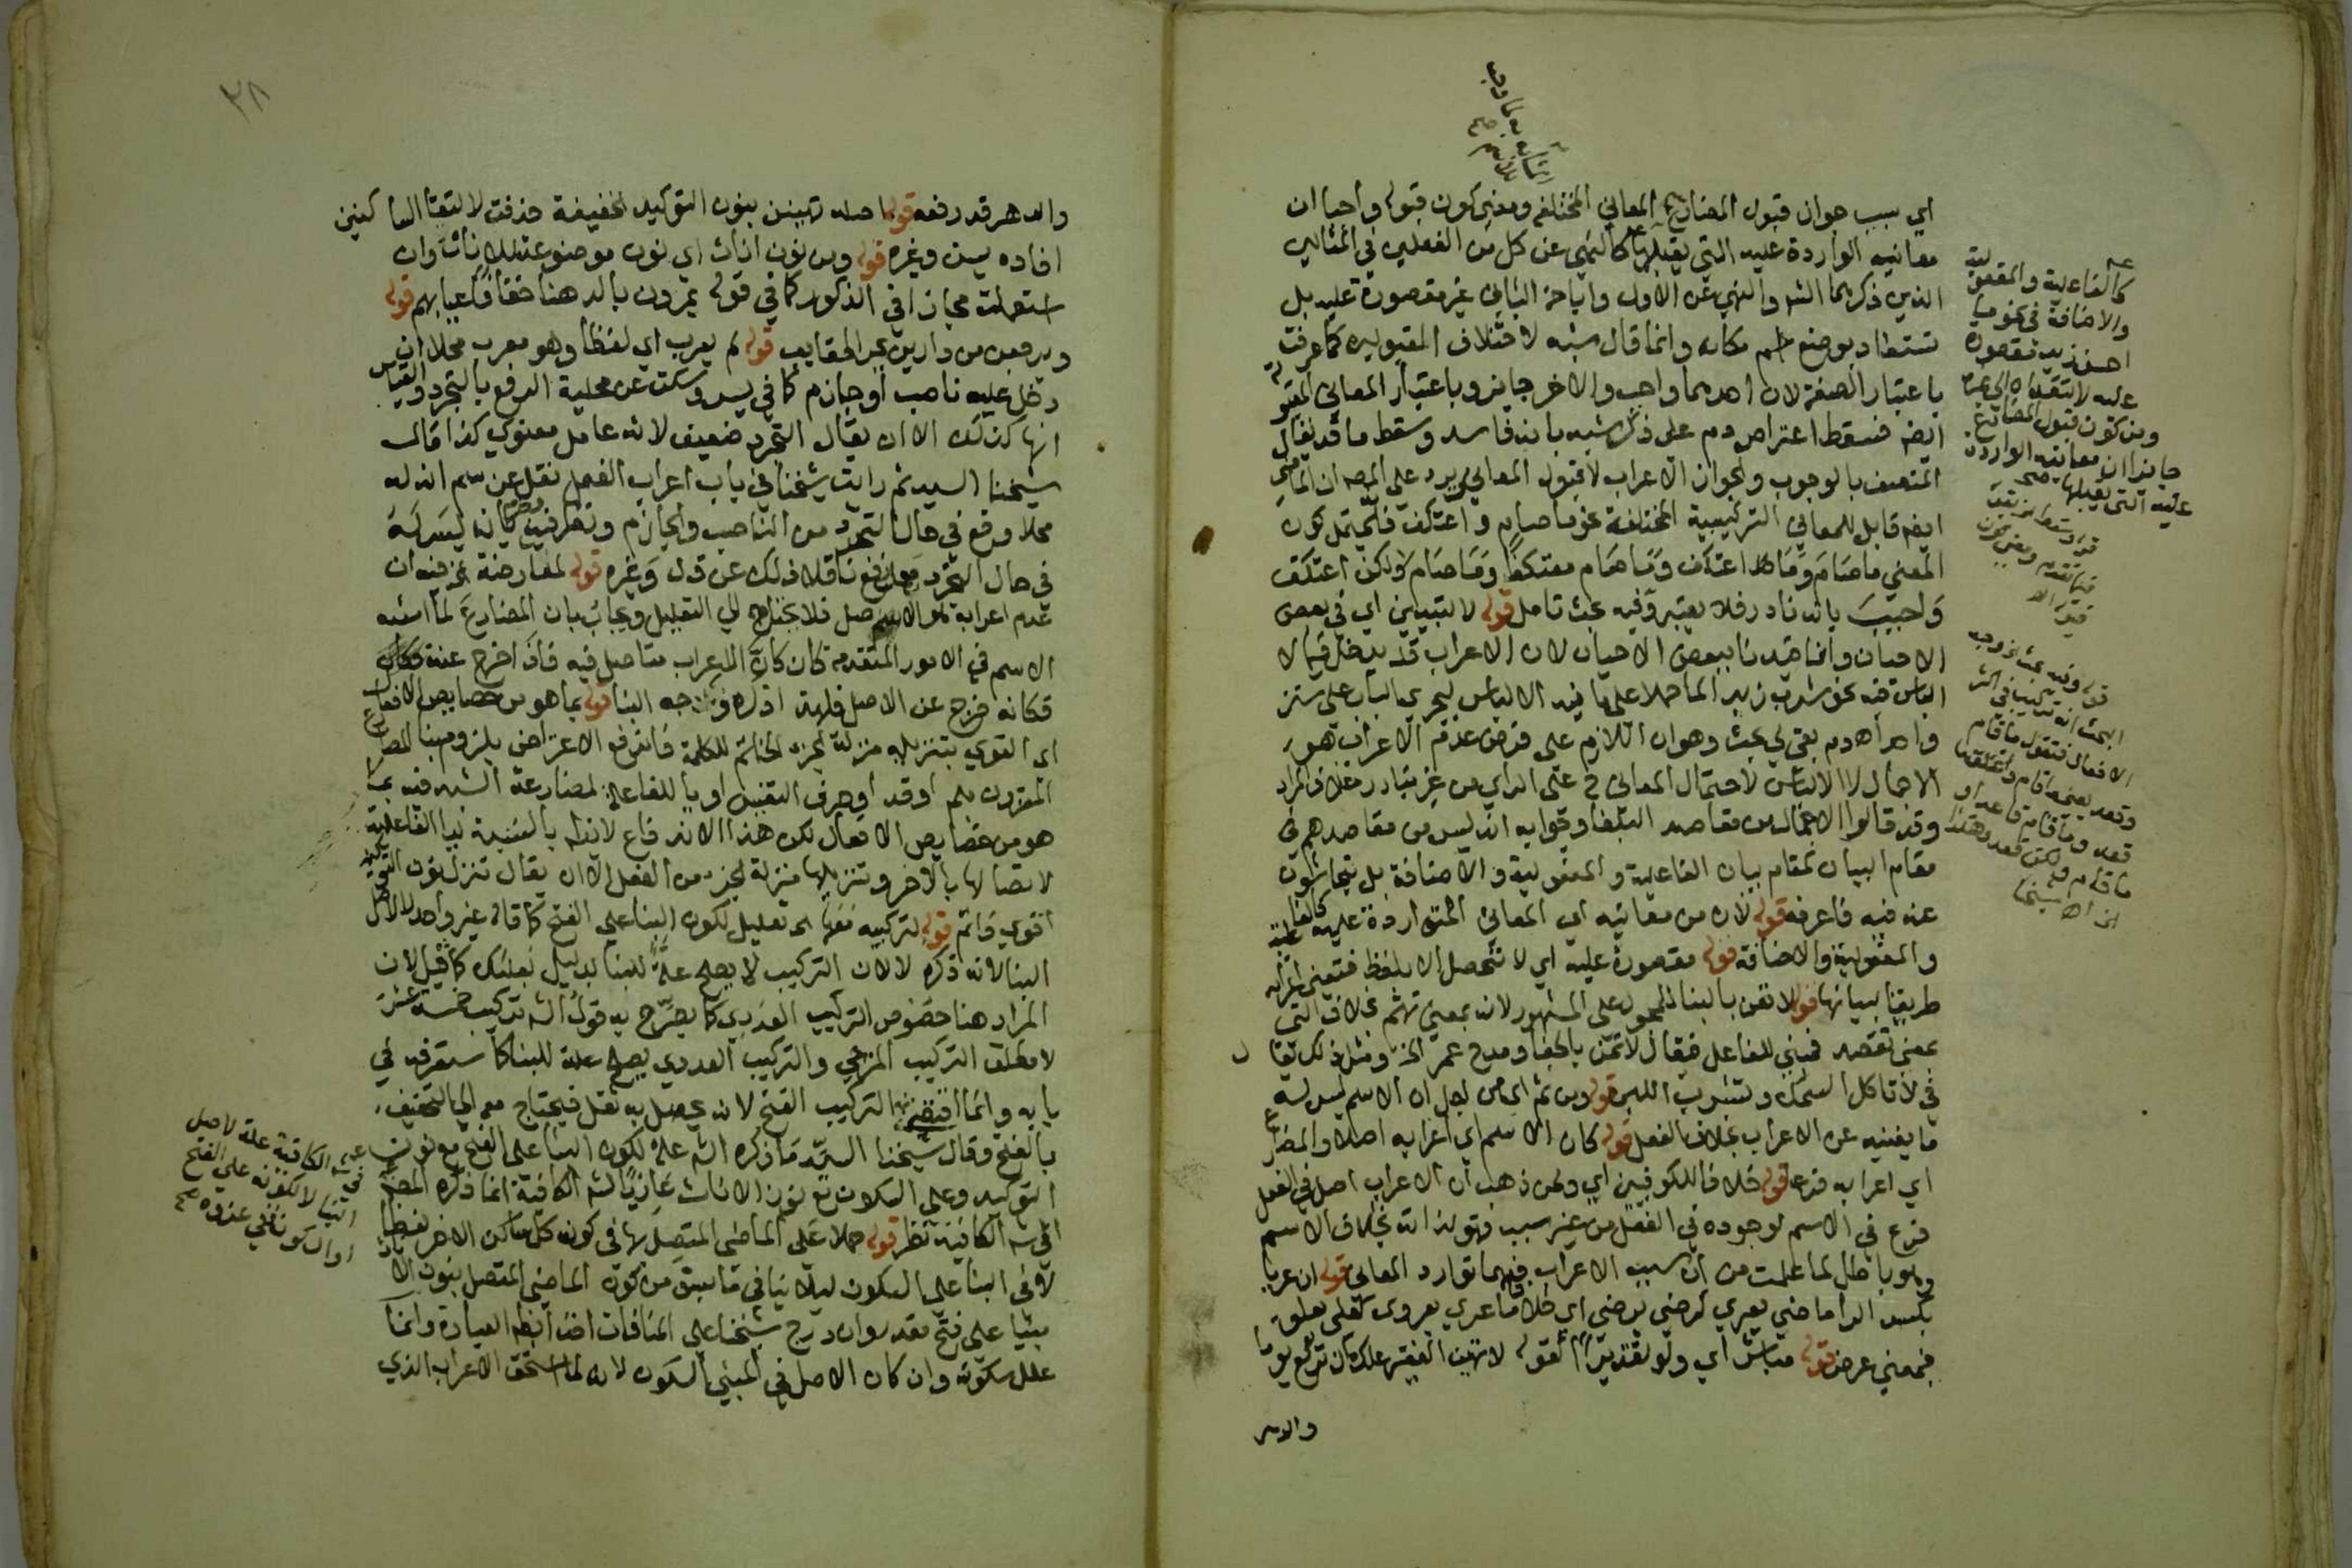 اي بسبب جواز قبول المضارع المعاني المختلفة ومعنى كون قبوله واجبا ان
معانيه الواردة عليه التي يقبلها كالنهي عن كل من الفعلين في المثالين
الذين ذكرهما الشه والنهي عن الاول واباحة الثاني غير مقصورة عليه بل
تستفاد بوضع اسم مكانه وانما قال بشبه لاختلاف المقبولين كما عرفت
باعتبار الصفة لان احدهما واجب والاخر جايز وباعتبار المعاني المقبولة
ايضه فسقط اعتراض دم على ذكر شبه بانه فاسد وسقط ما قد يقال
المتصف بالوجوب والجواز الاعراب لا قبول المعاني ويرد على المص ان الماضي
ايضه قابل للمعاني التركيبية المختلفة نحو ما صام واعتكف فانه يحتمل كون
المعنى ما صام وما اعتكف وما صام معتكفا وما صام ولكن اعتكف
واجيب بانه نادر فلا يعتبر وفيه بحث تامل قوله لا لتبيين اي في بعض
الاحيان وانما قيدنا ببعض الاحيان لان الاعراب قد يدخل فيما لا
الباس فيه نحو شرب زيد الماء حملا على ما فيه الالباس ليجري الباب على سنن
واحد اهـ دم بقي لي بحث وهو ان اللازم على فرض عدم الاعراب هو
الاجمال لا الالباس لاحتمال المعاني ح على الراي من غير تبادر خلاف المراد
وقد قالوا الاجمال من مقاصد البلغا وجوابه انه ليس من مقاصدهم في
مقام البيان كمقام بيان الفاعلية والمفعولية والاضافة بل يتحاشون
عنه فيه فاعرفه قوله لان من معانيه اي المعاني المتواردة عليه كالفاعلية
والمفعولية والاضافة قوله مقصورة عليه اي لا تحصل الا بلفظ فتعين اعرابه
طريقا لبيانها قوله لا تعن بالبنا للمجهول على المشهور لانه بمعنى تهتم بخلاف التي
بمعنى تقصد فمبني للفاعل فيقال لا تعن بالجفا ومدح عمر الخ ومثل ذلك يقال
في لا تاكل السمك وتشرب اللبن قوله ومن ثم اي من اجل ان الاسم ليس له
ما يغنيه عن الاعراب بخلاف الفعل قوله كان الاسم اي اعرابه اصلا والمضارع
اي اعرابه فرعا قوله خلافا للكوفيين اي ولمن ذهب ان الاعراب اصل في الفعل
فرع في الاسم لوجوده في الفعل من غير سبب فهو لذاته بخلاف الاسم
وهو باطل لما علمت من ان سبب الاعراب فيهما توارد المعاني قوله ان عريا
بكسر الرا ماضي يعرى كرضي يرضى اي خلا واما عرى يعرو كعلى يعلو
فبمعنى عرض قوله مباشر اي ولو تقديرا كقوله لا تهين الفقير علك ان تركع يوما
والدهر
كالفاعلية والمفعولية
والاضافة في نحو ما
احسن زيد مقصورة
عليه لا تتعداه الى غيره
ومن كون قبول المضارع
جايزا ان معانيه الواردة
عليه التي يقبلها صح
قوله وفيه بحث لو وجه
الافعال فتقول ما قام
وقعد بمعنى ما قام وما
قعد وما قام قاعدا و
ما قام ولكن قعد وهكذا
٣٨
والدهر قد رفعه قوله اصله تهينن بنون التوكيد الخفيفة حذفت لالتقا الساكنين
افاده يس وغيره قوله ومن نون اناث اي نون موضوعة للاناث وان
استعملت مجازا في الذكور كما في قوله يمرون بالدهنا خفافا عيابهم قوله
ويرجعن من دارين بجر الحقايب قوله لم يعرب اي لفظا وهو معرب محلا ان
دخل عليه ناصب او جازم كما في يس وسكت عن محلية الرفع بالتجرد والقياس
انها كذلك الا ان يقال التجرد ضعيف لانه عامل معنوي كذا قال
شيخنا السيد ثم رايت شيخنا في باب اعراب الفعل نقل عن سم ان له
محلا رفع في حال التجرد من الناصب والجازم ونظر فيه بانه ليس له
في حال التجرد محل رفع ناقلا ذلك عن قول وغيره قوله لمعارضة الخ فيه ان
عدم اعرابه هو الاصل فلا يحتاج الى التعليل ويجاب بان المضارع لما اشبه
الاسم في الامور المتقدمة كان كان الاعراب متاصل فيه فاذا خرج عنه
فكانه خرج عن الاصل فلهذا ذكره وجه البنا قوله بما هو من خصايص الافعال
اي القوي بتنزيله منزلة الجزء الخاتم للكلمة فاندفع الاعتراض بلزوم بنا المضارع
المقرون بلم او قد او حرف التنفيس او يا الفاعلة لمضارعة الشبه فيه بما
هو من خصايص الافعال لكن هذا الاندفاع لا يتم بالنسبة ليا الفاعلة
لاتصالها بالاخر وتنزيلها منزلة الجزء من الفعل الا ان يقال تنزل نون التوكيد
اقوى فاتم قوله لتركيبه معها اي تعليل لكون البنا على الفتح كما قاله غير واحد لا لاصل
البنا لانه ذكره لا لان التركيب لا يصلح علة للبنا بدليل بعلبك كما قيل لان
المراد هنا خصوص التركيب العددي كما يصرح به قول الشه تركيب خمسة عشر
لا مطلق التركيب المزجي والتركيب العددي يصلح علة للبنا كما ستعرفه في
بابه وانما اقتضى التركيب الفتح لانه يحصل به ثقل فيحتاج معه الى التخفيف
بالفتح وقال شيخنا السيد ما ذكره الشه علة لكون البنا على الفتح مع نون
التوكيد وعلى السكون مع نون الاناث عازيا لشه الكافية انما ذكره المصنف
في شه الكافية نظر قوله حملا على الماضي المتصل بها في كون كل ساكن الاخر لفظا
لا في البنا على السكون ليلا ينافي ما سبق من كون الماضي المتصل بنون الاناث
مبنيا على فتح مقدر وان درج شيخنا على المنافات اخذا بظه العبارة وانما
علل سكونه وان كان الاصل في المبني السكون لانه لما استحق الاعراب الذي
شه الكافية علة لاصل
البنا لا لكونه على الفتح
او السكون